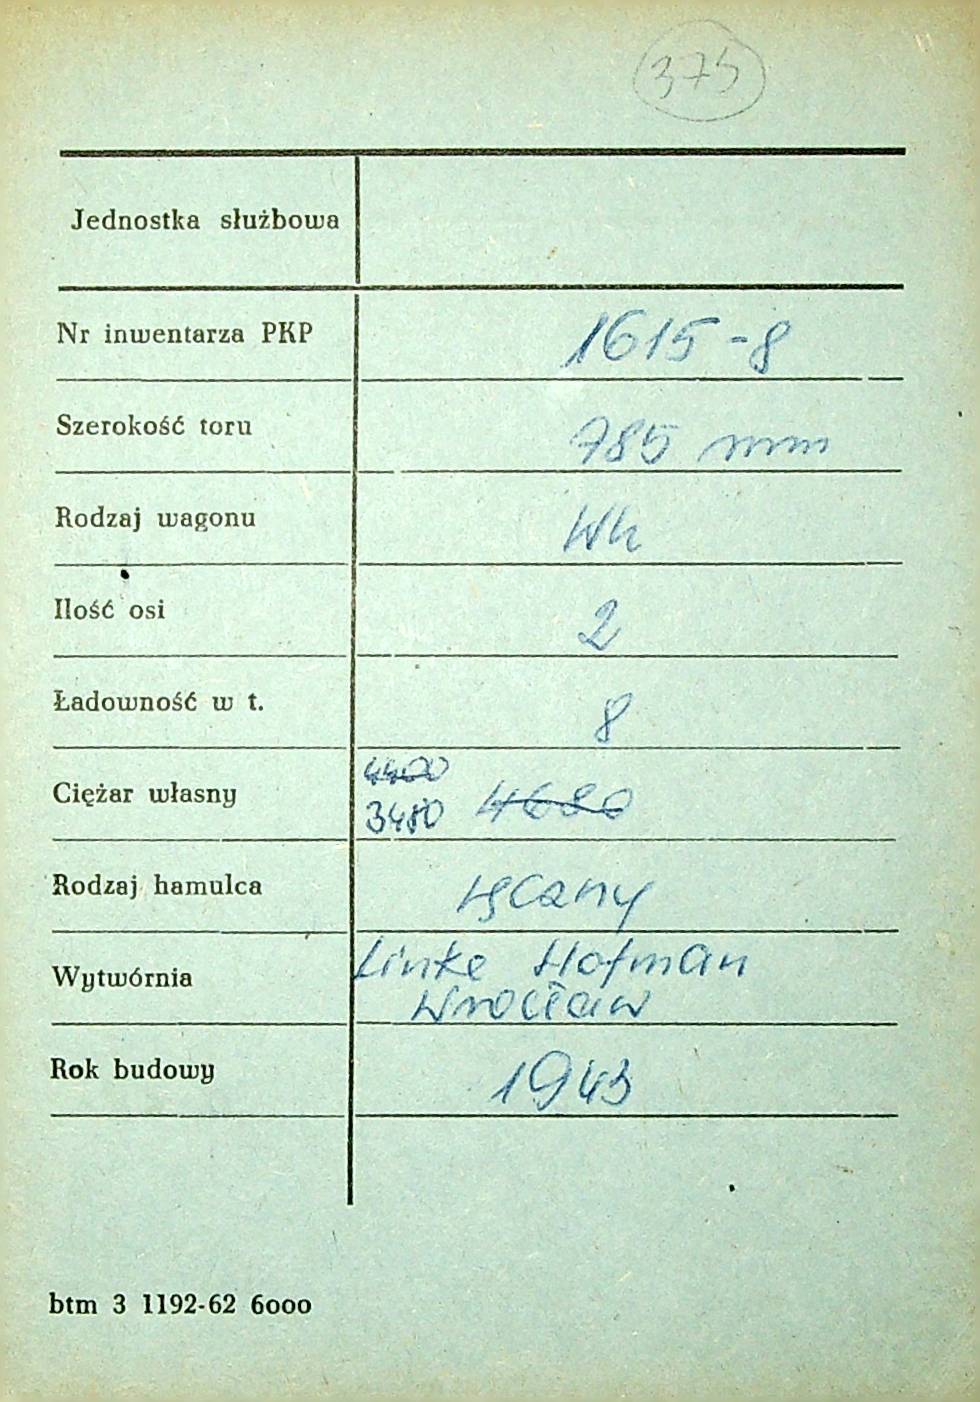 375
Jednostka służbowa
Nr inwentarza PKP 1615-8
Szerokość toru 785 mm
Rodzaj wagonu Wh
Ilość osi 2
Ładowność w t. 8
4400
Ciężar własny 3480 4680
Rodzaj hamulca ręczny
Linke Hofman
Wytwórnia Wrocław
Rok budowy 1943
btm 3 1192-62 6000